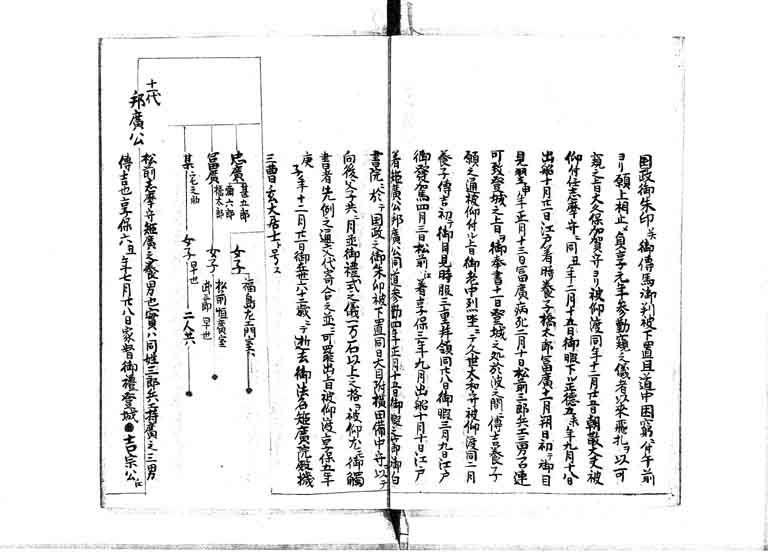 国政御朱印并御傳馬御判被下置且道中困窮ニ付午前
ヨリ願上相止ム貞享元年参勤窺之儀者以来飛札ヲ以可
窺之旨大久保加賀守ヨリ被仰渡同年十二月廿五日朝散大夫被
仰付任志摩守ニ同丑年二月十五日御暇下ル正徳五未年九月十八日
出船十月廿一日江戸着時養子橋太郎富廣十一月朔日初テ御目
見翌申年正月十三日富廣病死二月十日松前三郎兵工三男召連
可致登城之上旨御奉書十一日登城之処於波之間傳吉養子
願之通被仰付ル上旨御老中列坐ニテ久世大和守被仰渡同二月
養子傳吉初テ御目見時服三重拜領同廿八日御暇三月九日江戸
御發駕四月三日松前江着享保三年九月出船十月十日江戸
着矩廣公邦廣公同道参勤四年正月十五日御暇之節御白
書院ニ於テ国政之御朱印被下置同日大目附横田備中守以テ
向後父子共ニ月並御禮式之儀一万石以上之格ヲ被仰左ニ御觸
書者先例之通交代寄合之並ニ可罷出旨被仰渡享保五年
庚子年十二月廿一日御年六十二歳ニテ逝去御法名矩廣院殿機
三曹玄大居士ト号ス
忠廣 甚五郎 彌六郎
女子 福島左工門室ニ
富廣 橋太郎
女子 松前恒廣室 早世
某 之助
女子 早世 二人共
十一代
邦廣公
松前志摩守矩廣之養男也實ハ同姓三郎兵工廣之三男
傳吉也享保六丑年七月廿八日家督御禮登城 吉宗公江